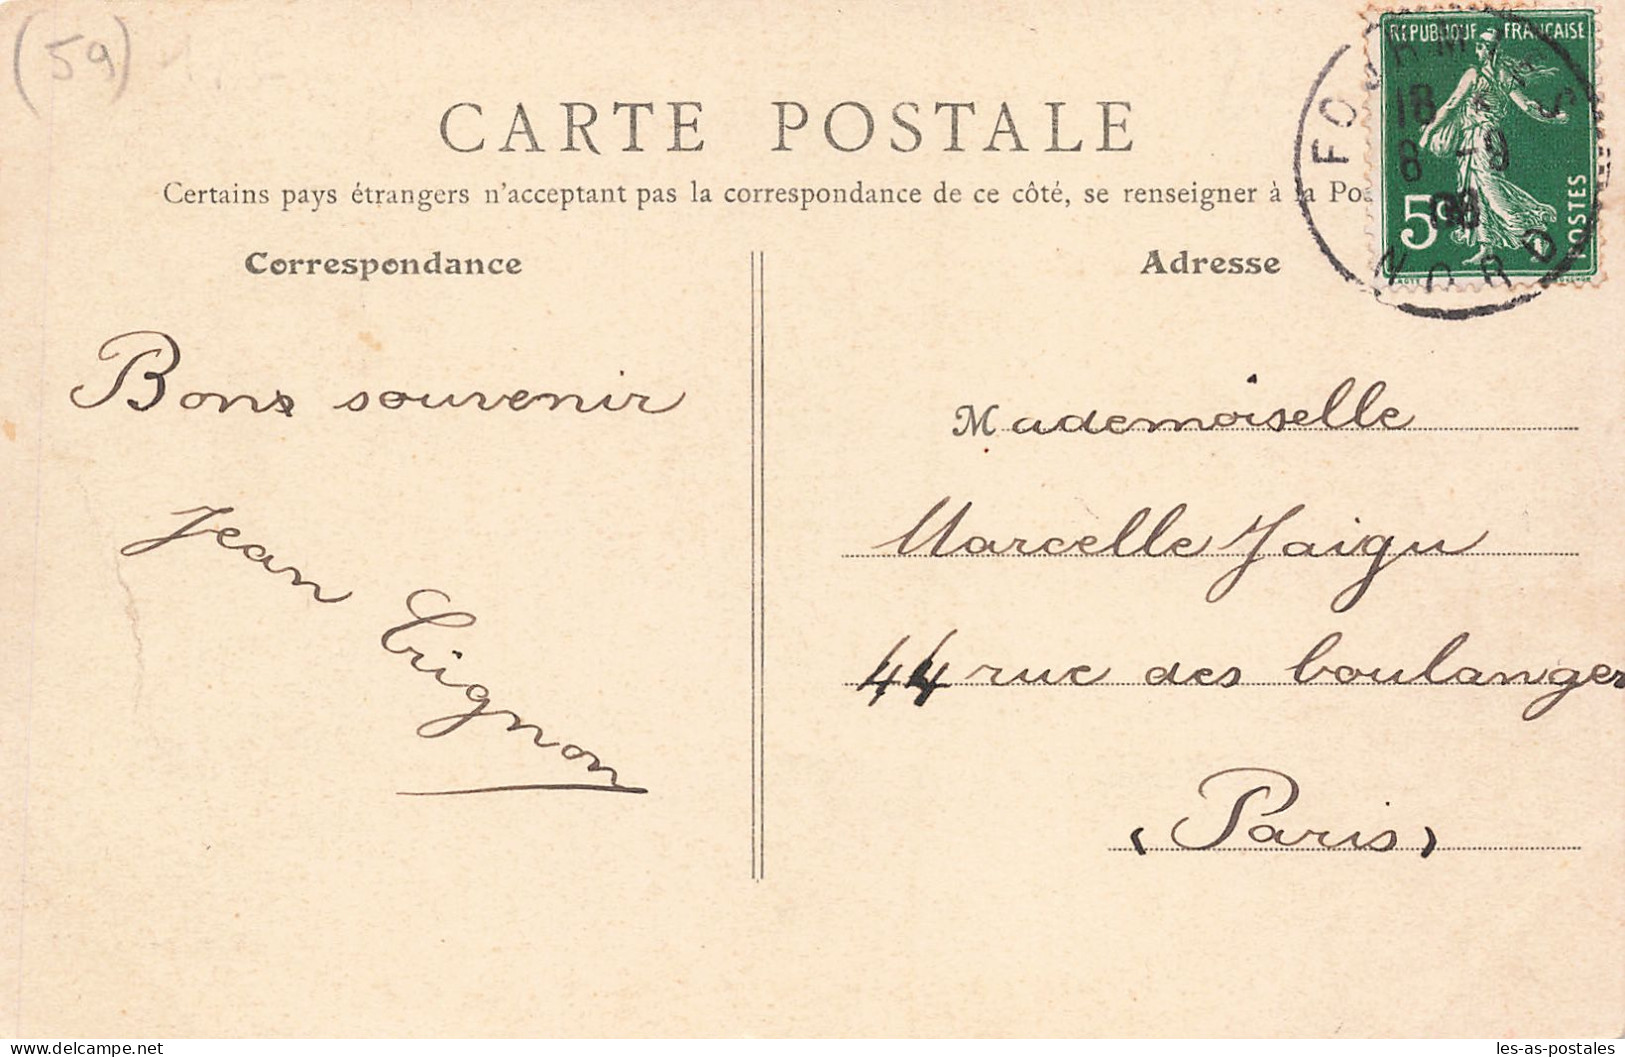 (59)
CARTE POSTALE
Certains pays étrangers n'acceptant pas la correspondance de ce côté, se renseigner à la Po
Correspondance
Adresse
REPUBLIQUE FRANÇAISE
5c
POSTES
FOURMIES
18
8 - 9
08
NORD
Bons souvenir
Jean Crignon
Mademoiselle
Marcelle Jaigu
44 rue des boulanger
(Paris)
delcampe.net
les-as-postales